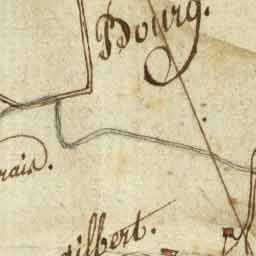 Bourg.
rais.
gilbert.